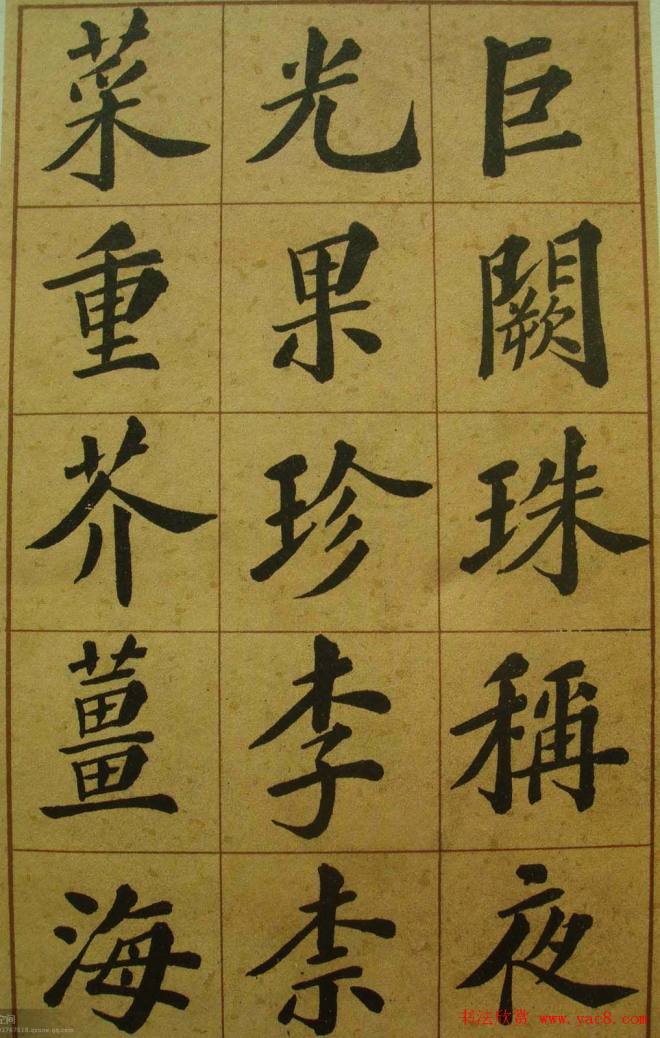 巨闕珠稱夜
光果珍李柰
菜重芥薑海
空间
书法欣赏 www.yac8.com